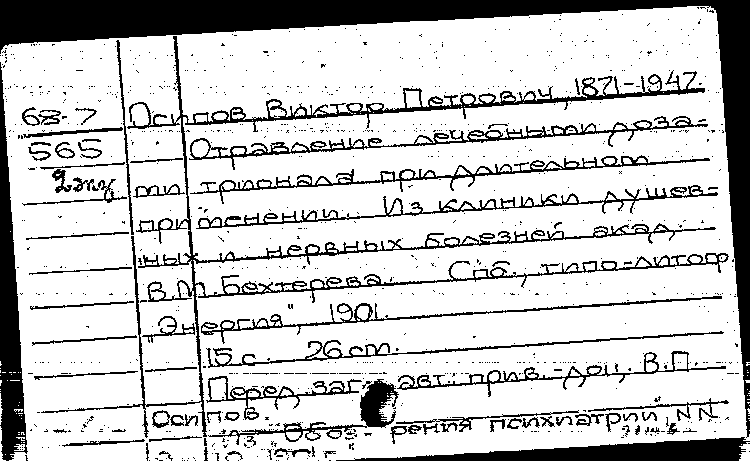 68-7 Осипов, Виктор Петрович, 1871-1947.
565 Отравление лечебными доза-
2 экз ми трионала при длительном
применении. Из клиники душев-
ных и нервных болезней акад.
В.М. Бехтерева. Спб., типо-литогр.
"Энергия", 1901.
15 с. 26 см.
Перед загл. авт.: прив.-доц. В.П.
Осипов.
Из "Обозрения психиатрии", NN